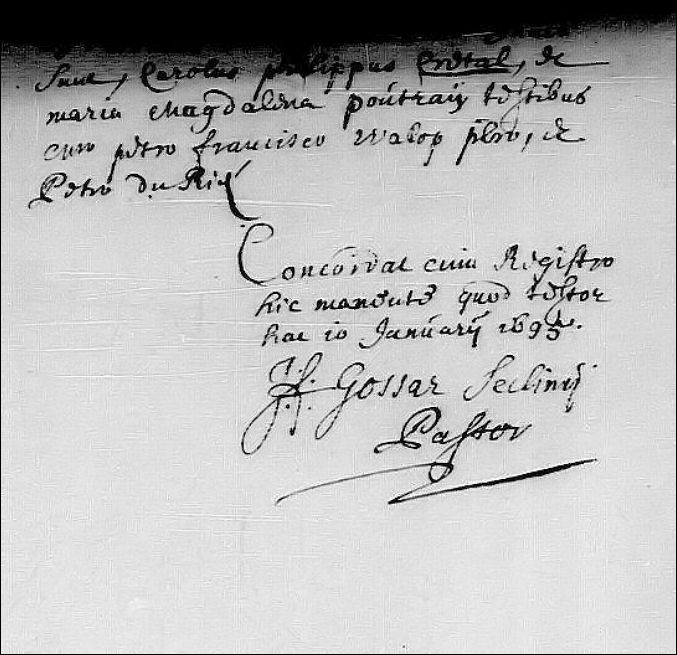 sunt, Carolus philippus Crétal, &
maria Magdalena poutraij testibus
cum petro francisco walop pbro, &
Petro du Riéz
Concordat cum Registro
hic manente quod testor
hac 10 Januarij 1693.
Gossar Seclinij
Pastor